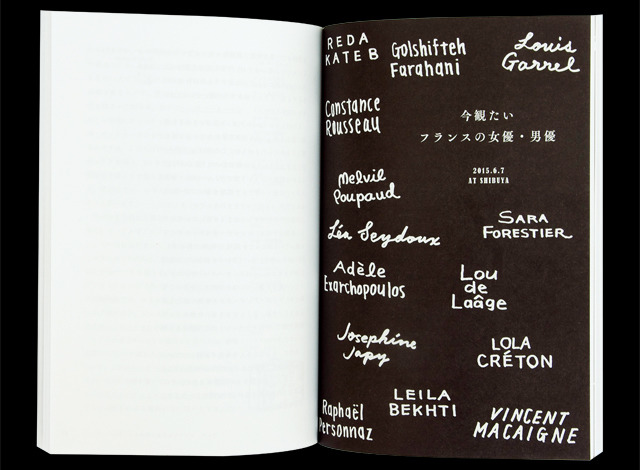 REDA
KATEB
Golshifteh
Farahani
Louis
Garrel
Constance
Rousseau
今観たい
フランスの女優・男優
2015.6.7
AT SHIBUYA
Melvil
Poupaud
Léa Seydoux
SARA
FORESTIER
Adèle
Exarchopoulos
Lou
de
Laâge
Josephine
Japy
LOLA
CRÉTON
LEILA
BEKHTI
Raphaël
Personnaz
VINCENT
MACAIGNE